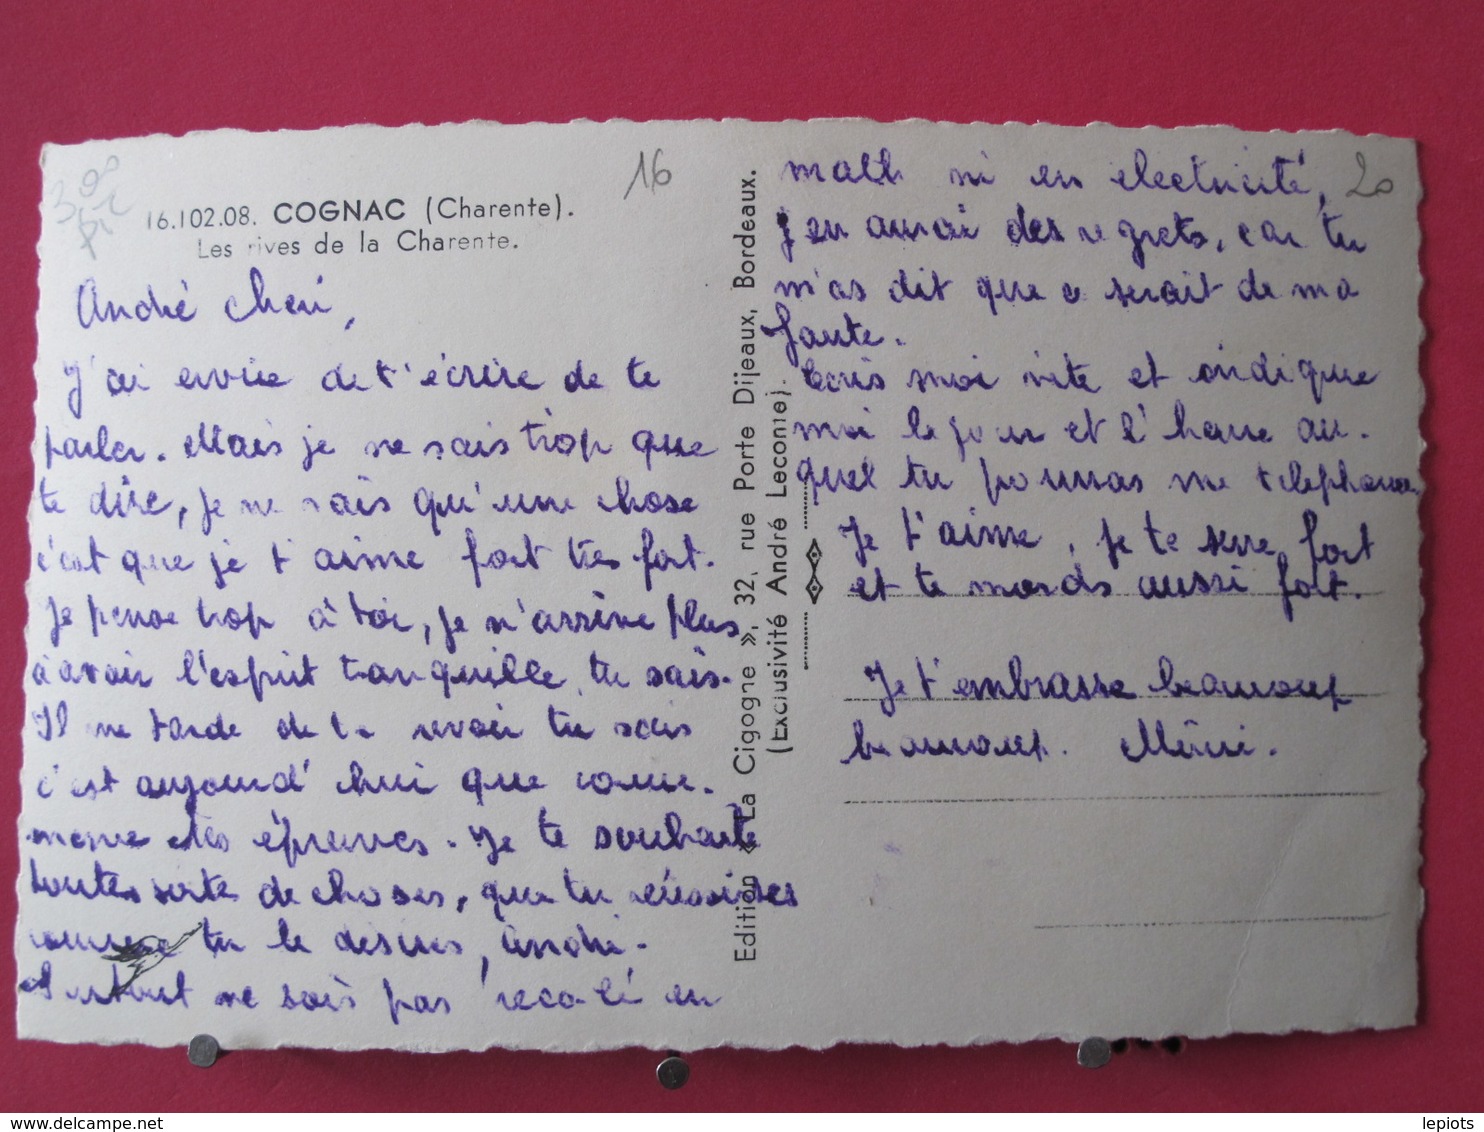 16.102.08. COGNAC (Charente).
Les rives de la Charente.
16
André cheri,
J'ai envie de t'écrire de te
parler. Mais je ne sais trop que
te dire, je ne sais qu'une chose
c'est que je t'aime fort très fort.
Je pense trop à toi, je n'arrive plus
à avoir l'esprit tranquille, tu sais.
Il me tarde de te revoir tu sais
c'est aujourd'hui que comme.
mence des épreuves. Je te souhaite
toutes sorte de choses, que tu réussisses
comme tu le désires, André.
Surtout ne sois pas recalé en
math ni en électricité,
j'en aurai des regrets, car tu
m'as dit que ce serait de ma
faute.
Ecris moi vite et indique
moi le jour et l'heure au.
quel tu pourras me telephoner
Je t'aime, je te serre fort
et te mords aussi fort.
Je t'embrasse beaucoup
beaucoup. Mimi.
20
Edition « La Cigogne », 32, rue Porte Dijeaux, Bordeaux.
(Exclusivité André Leconte).
delcampe.net
lepiots